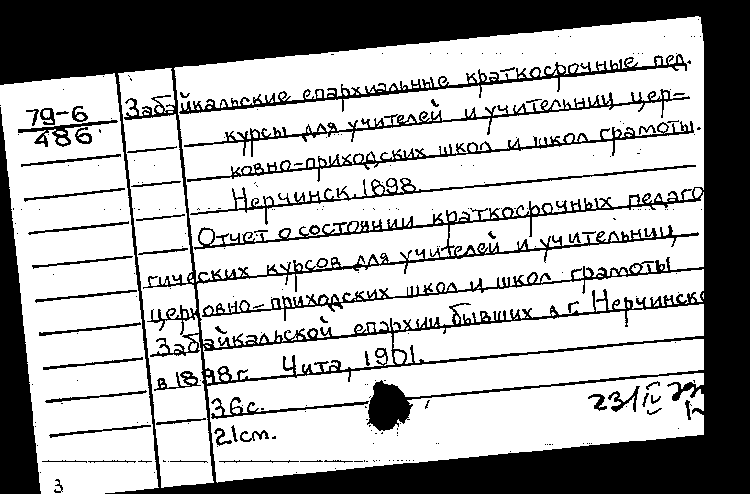 79-6
486
Забайкальские епархиальные краткосрочные пед.
курсы для учителей и учительниц цер=
ковно-приходских школ и школ грамоты.
Нерчинск. 1898.
Отчет о состоянии краткосрочных педаго
гических курсов для учителей и учительниц
церковно-приходских школ и школ грамоты
Забайкальской епархии, бывших в г. Нерчинске
в 1898 г. Чита, 1901.
36с.
21см.
23/IV
3